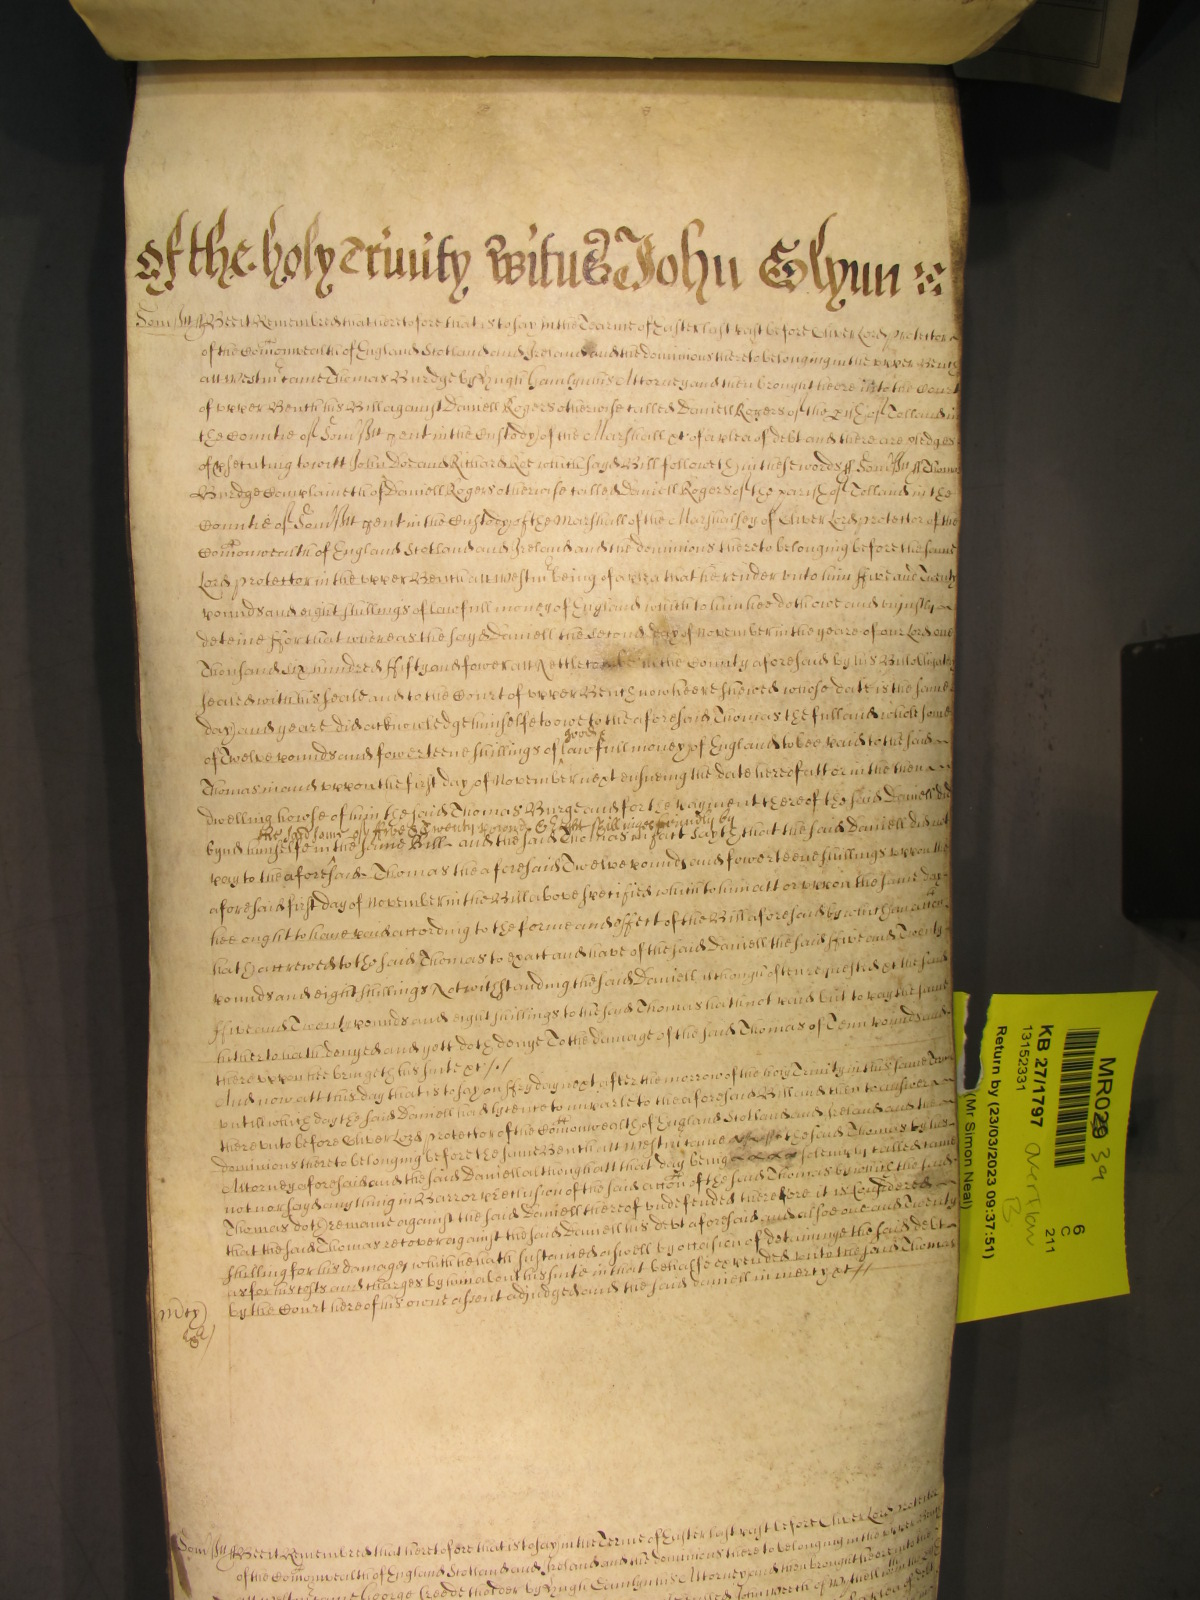 of the holy Trinity Witnes John Glynn
Som'sett ss Bee it Remembred that heretofore that is to say in the Tearme of Easter last past before Oliver Lord Protector
of the Com'onwealth of England Scotland and Ireland and the dominions thereto belonging in the upper Bench
att Westm' came Thomas Burdge by Hugh Hamlyn his Attorney and then brought heere into the Court
of upper Bench his Bill against Daniell Rogers otherwise called Daniell Rogers of the p'ish of Tolland in
the Countie of Som'sett gent in the Custody of the Marshall &c of a plea of debt and there are pledges
of p'secuting to witt John Doe and Richard Roe which sayd Bill followeth in these words ss Som'sett ss Thomas
Burdge Complaineth of Daniell Rogers otherwise called Daniell Rogers of the parish of Tolland in the
Countie of Som'sett gent in the Custody of the Marshall of the Marshalsey of Oliver Lord protector of the
Com'onwealth of England Scotland and Ireland and the dominions thereto belonging before the same
Lord protector in the upper Bench att Westm' being of a plea that he render unto him ffive and Twenty
pounds and eight shillings of lawfull money of England which to him hee doth owe and uniustly
deteine ffor that whereas the sayd Daniell the second day of November in the yeare of our Lord one
Thousand six hundred ffifty and fower att in the County aforesaid by his Bill obligatory
sealed with his seale and to the Court of upper Bench now heere shewed whose date is the same
day and yeare did acknowledge himselfe to owe to the aforesaid Thomas the full and whole some
good &
of Twelve pounds and fowerteene shillings of lawfull money of England to bee paid to the said
Thomas in and uppon the first day of November next ensueing the date hereof att or in the then
dwelling howse of him the said Thomas Burge and for the payment thereof the said Daniell did
the said some of ffive & Twenty pounds & Eight shillings by
bynd himselfe in the same Bill and the said Thomas in fact sayth that the said Daniell did not
pay to the aforesaid Thomas the aforesaid Twelve pounds and fowerteene shillings uppon the
aforesaid first day of November in the Bill above specified which to him att or uppon the same day
hee ought to have paid according to the forme and effect of the Bill aforesaid by which an acc'on
hath accrewed to the said Thomas to exact and have of the said Daniell the said ffive and Twenty
pounds and eight shillings Notwithstanding the said Daniell although often requested &c the said
ffive and Twenty pounds and eight shillings to the said Thomas hath not paid but to pay the same
hitherto hath denyed and yett doth denye To the damage of the said Thomas of Tenn pounds and
thereuppon hee bringeth his suite &c //
And now att this day that is to say on ffryday next after the morrow of the holy Trinity in this same Terme
untill which day the said Daniell had lycence to imparle to the aforesaid Bill and then to answer
thereunto before Oliver Lord protector of the Com'onwealth of England Scotland and Ireland and the
dominions thereto belonging before the same Bench att Westm' came the said Thomas by his
Attorney aforesaid and the said Daniell although att that day being solemnly called came
not nor sayd any thing in Barr or p'clusion of the said acc'on of the said Thomas by which the said
Thomas doth remaine against the said Daniell thereof undefended therefore it is Considered
that the said Thomas recover against the said Daniell his debt aforesaid and alsoe one and Twenty
shilling for his damages which he hath susteined aswell by occasion of deteininge the said debt
as for his costs and charges by him about his suite in that behalfe expended unto the said Thomas
by the Court here of his owne assent adjudged and the said daniell in mercy &c //
Mcy
Som'sett ss Bee it Remembred that heretofore that is to say in the Terme of Easter last past before Oliver Lord Protector
of the Com'onwealth of England Scotland and Ireland and the dominions thereto belonging in the upper Bench
att Westm' came George by Hugh Hamlyn his Attorney and then brought heere into the
MR029 39
KB 27/1797
13152331
Return by (23/03/2023 09:37:51)
(Mr Simon Neal)
6
C
211
Overflow
B